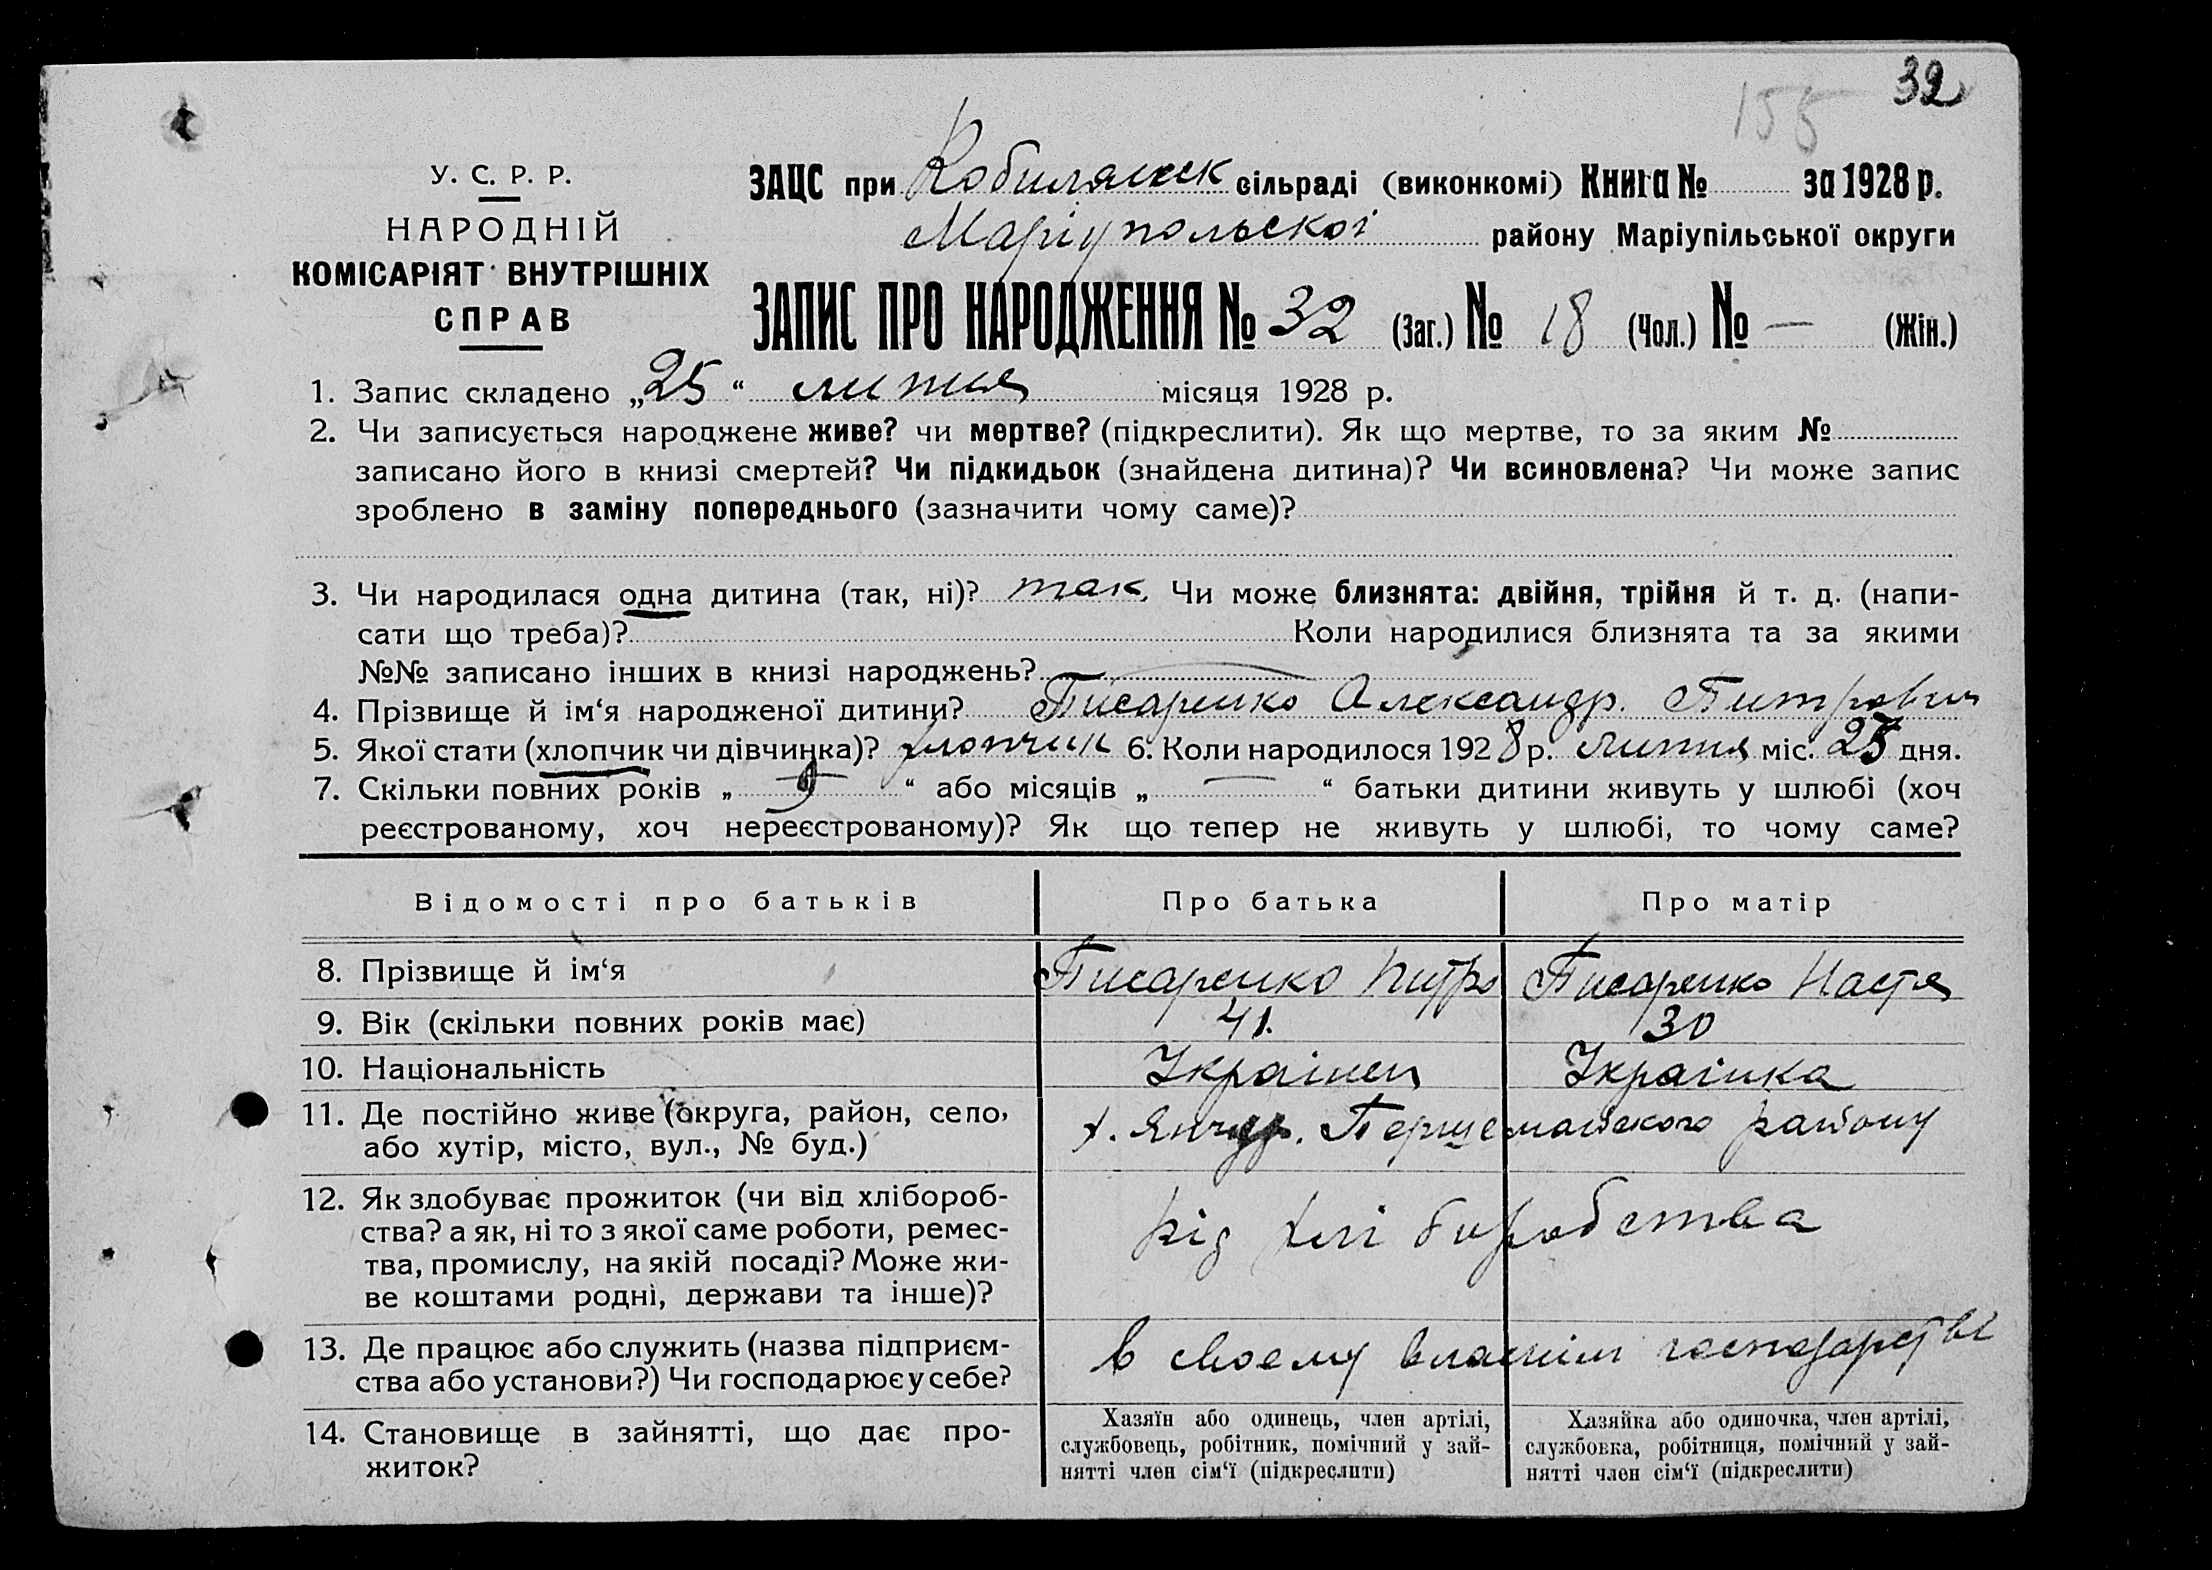 32
155
У. С. Р. Р.
НАРОДНІЙ
КОМІСАРІЯТ ВНУТРІШНІХ
СПРАВ
ЗАЦС при Кобиляцск сільраді (виконкомі) Книга № за 1928 р.
Маріупольскоі району Маріупільської округи
ЗАПИС ПРО НАРОДЖЕННЯ № 32 (Заг.) № 18 (Чол.) № — (Жін.)
1. Запис складено „25“ липня місяця 1928 р.
2. Чи записується народжене живе? чи мертве? (підкреслити). Як що мертве, то за яким №
записано його в книзі смертей? Чи підкидьок (знайдена дитина)? Чи всиновлена? Чи може запис
зроблено в заміну попереднього (зазначити чому саме)?
3. Чи народилася одна дитина (так, ні)? так. Чи може близнята: двійня, трійня й т. д. (напи-
сати що треба)? Коли народилися близнята та за якими
№№ записано інших в книзі народжень?
4. Прізвище й ім‘я народженої дитини? Писаренко Александр. Питрович
5. Якої стати (хлопчик чи дівчинка)? хлопчик 6. Коли народилося 1928 р. липня міс. 25 дня.
7. Скільки повних років „ 9 “ або місяців „ — “ батьки дитини живуть у шлюбі (хоч
реєстрованому, хоч нереєстрованому)? Як що тепер не живуть у шлюбі, то чому саме?
Відомості про батьків Про батька Про матір
8. Прізвище й ім‘я Писаренко Питро Писаренко Настя
9. Вік (скільки повних років має) 41. 30
10. Національність Українец Українка
11. Де постійно живе (округа, район, село,
або хутір, місто, вул., № буд.)
х. Янчур. Першемайского району
12. Як здобуває прожиток (чи від хлібороб-
ства? а як, ні то з якої саме роботи, ремес-
тва, промислу, на якій посаді? Може жи-
ве коштами родні, держави та інше)?
від хліборобства
13. Де працює або служить (назва підприєм-
ства або установи?) Чи господарює у себе?
в своему власнім господарстві
14. Становище в зайнятті, що дає про-
житок?
Хазяїн або одинець, член артілі,
службовець, робітник, помічний у зай-
нятті член сім‘ї (підкреслити)
Хазяйка або одиночка, член артілі,
службовка, робітниця, помічний у зай-
нятті член сім‘ї (підкреслити)